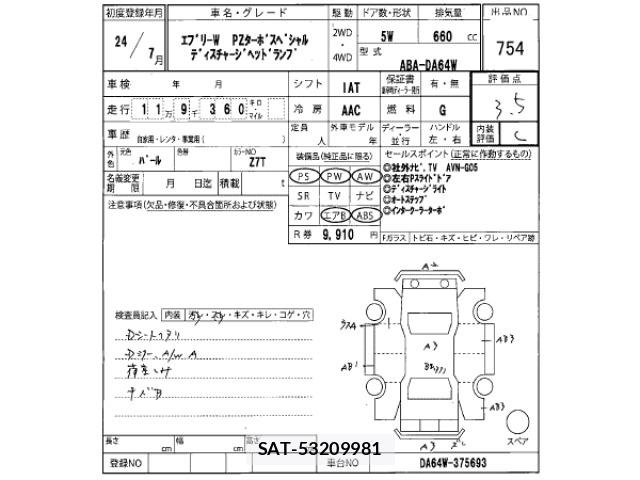 初度登録年月 車名・グレード 駆動 ドア数・形状 排気量 出品NO
24 / 7月 エブリーW PZターボスペシャル 2WD・4WD 5W 660 cc 754
ディスチャージヘッドランプ 型式 ABA-DA64W
車検 年 月 シフト IAT 保証書 有・無 評価点
3.5
走行 11万9千360 キロ・マイル 冷房 AAC 燃料 G
車歴 自家用・レンタ・事業用( ) 定員 人 外車モデル 年 ディーラー・並行 ハンドル 左・右 内装評価 C
外色 元色 パール 色替 カラーNO Z7T 装備品(純正品に限る) セールスポイント(正常に作動するもの)
PS PW AW ◎社外ナビ,TV AVN-G05
名義変更期限 月 日迄 積載 t ◎左右Pスライドドア
SR TV ナビ ◎ディスチャージライト
注意事項(欠品・修復・不具合箇所および状態) ◎オートステップ
カワ エアB ABS ◎インタークーラーターボ
R券 9,910 円 Fガラス トビ石・キズ・ヒビ・ワレ・リペア跡
A2
検査員記入 内装 汚レ・スレ・キズ・キレ・コゲ・穴
Dシートスアリ
A3
AB3
AB1
AB3
A3
スペア
長さ cm 幅 cm 高さ
SAT-53209981
登録NO 車台NO DA64W-375693